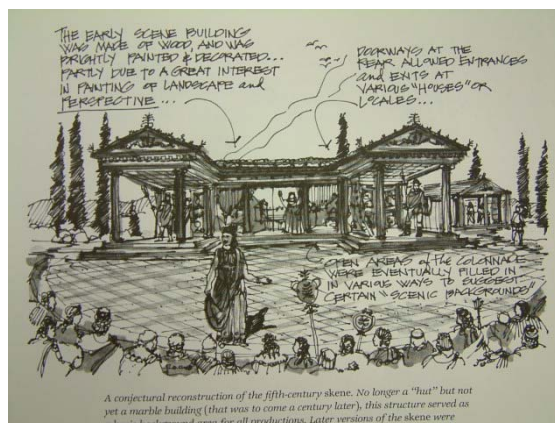 THE EARLY SCENE BUILDING
WAS MADE OF WOOD, AND WAS
BRIGHTLY PAINTED & DECORATED...
PARTLY DUE TO A GREAT INTEREST
IN PAINTING OF LANDSCAPE and
PERSPECTIVE...
DOORWAYS AT THE
REAR ALLOWED ENTRANCES
and EXITS AT
VARIOUS "HOUSES" OR
LOCALES...
OPEN AREAS of the COLONNADE
WERE EVENTUALLY FILLED IN
IN VARIOUS WAYS TO SUGGEST
CERTAIN "SCENIC BACKGROUNDS"
A conjectural reconstruction of the fifth-century skene. No longer a "hut" but not
yet a marble building (that was to come a century later), this structure served as
background area for all productions. Later versions of the skene were